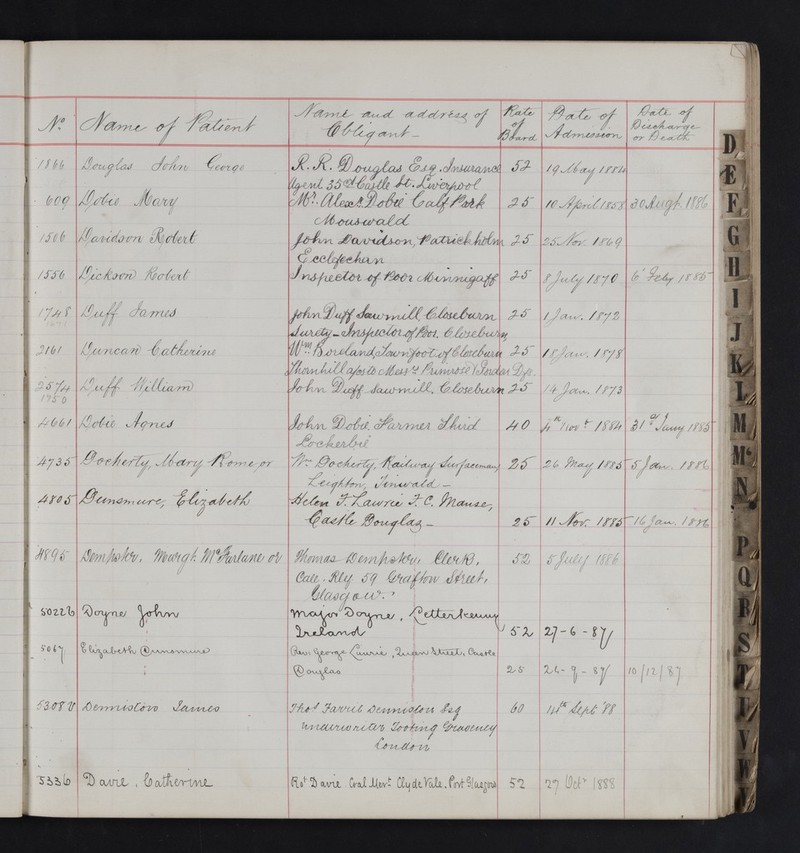 No. Name of Patient Name and address of Obligant Rate of Board Date of Admission Date of Discharge or Death
1866 Douglas John George R. R. Douglas Esq. Insurance 52 19 May 1884
Agent 35 Castle St. Liverpool
609 Dobie Mary Mr. Alexr. Dobie Calf Park 25 10 April 1858 30 Augt. 1886
Mouswald
1506 Davidson Robert John Davidson, Patrickholm 25 25 Nov. 1869
Ecclefechan
1556 Dickson Robert Inspector of Poor Minnigaff 25 8 July 1870 6 Feby 1885
1748 Duff James John Duff Sawmill, Closeburn 25 1 Jan. 1872
Surety - Inspector of Poor, Closeburn
2161 Duncan Catherine Wm. Boreland, Townfoot of Closeburn 25 18 Jan. 1878
Thornhill
2574 Duff William John Duff Sawmill, Closeburn 25 14 Jan. 1873
1750
4661 Dobie Agnes John Dobie, Farmer Shird 40 4th Novr 1884 31st Jany 1885
Lockerbie
4735 Docherty, Mary Rome or Wm. Docherty, Railway Surfaceman, 25 26 May 1885 5 Jan. 1886
Leighton, Tinwald -
4805 Dunsmure, Elizabeth Helen F. Lawrie F. C. Manse,
Castle Douglas - 25 11 Nov. 1885 16 Jan. 1886
4895 Dempster, McFarlane or Thomas Dempster, Clerk, 52 5 July 1886
Cale. Rly 59 Grafton Street,
Glasgow.
5022b Doyne John Major Doyne, Letterkenny
Ireland 52 27-6-87
5067 Elizabeth Dunsmure Rev. George Laurie, Queen Street, Castle
Douglas 25 24-9-87 10/12/87
5308 Dennistoun James Thos Farrie Dennistoun Esq 60 14th Sept '88
Underwriter Tooting Graveney
London
5336 Davie, Catherine Rot Davie Coal Mert. Clyde Vale, Port Glasgow 52 27 Oct 1888
D
E
F
G
H
I
J
K
L
M
Mc
N
P
Q
R
S
T
V
W